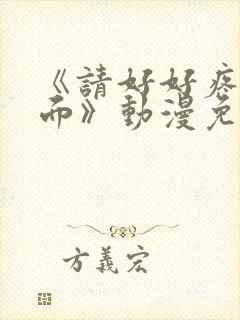 《請好好疼
而》動漫免
方義宏